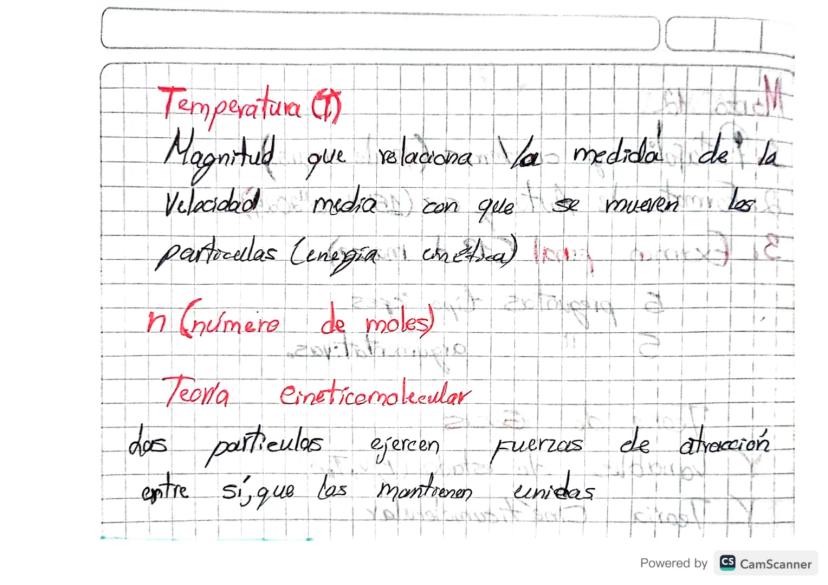 Temperatura (T)
Magnitud que relaciona la medida de la
velocidad media con que se mueven las
particulas (energía cinética)
n (número de moles)
Teoría cineticomolecular
las particulas ejercen fuerzas de atracción
entre sí, que las mantienen unidas
Powered by CS CamScanner